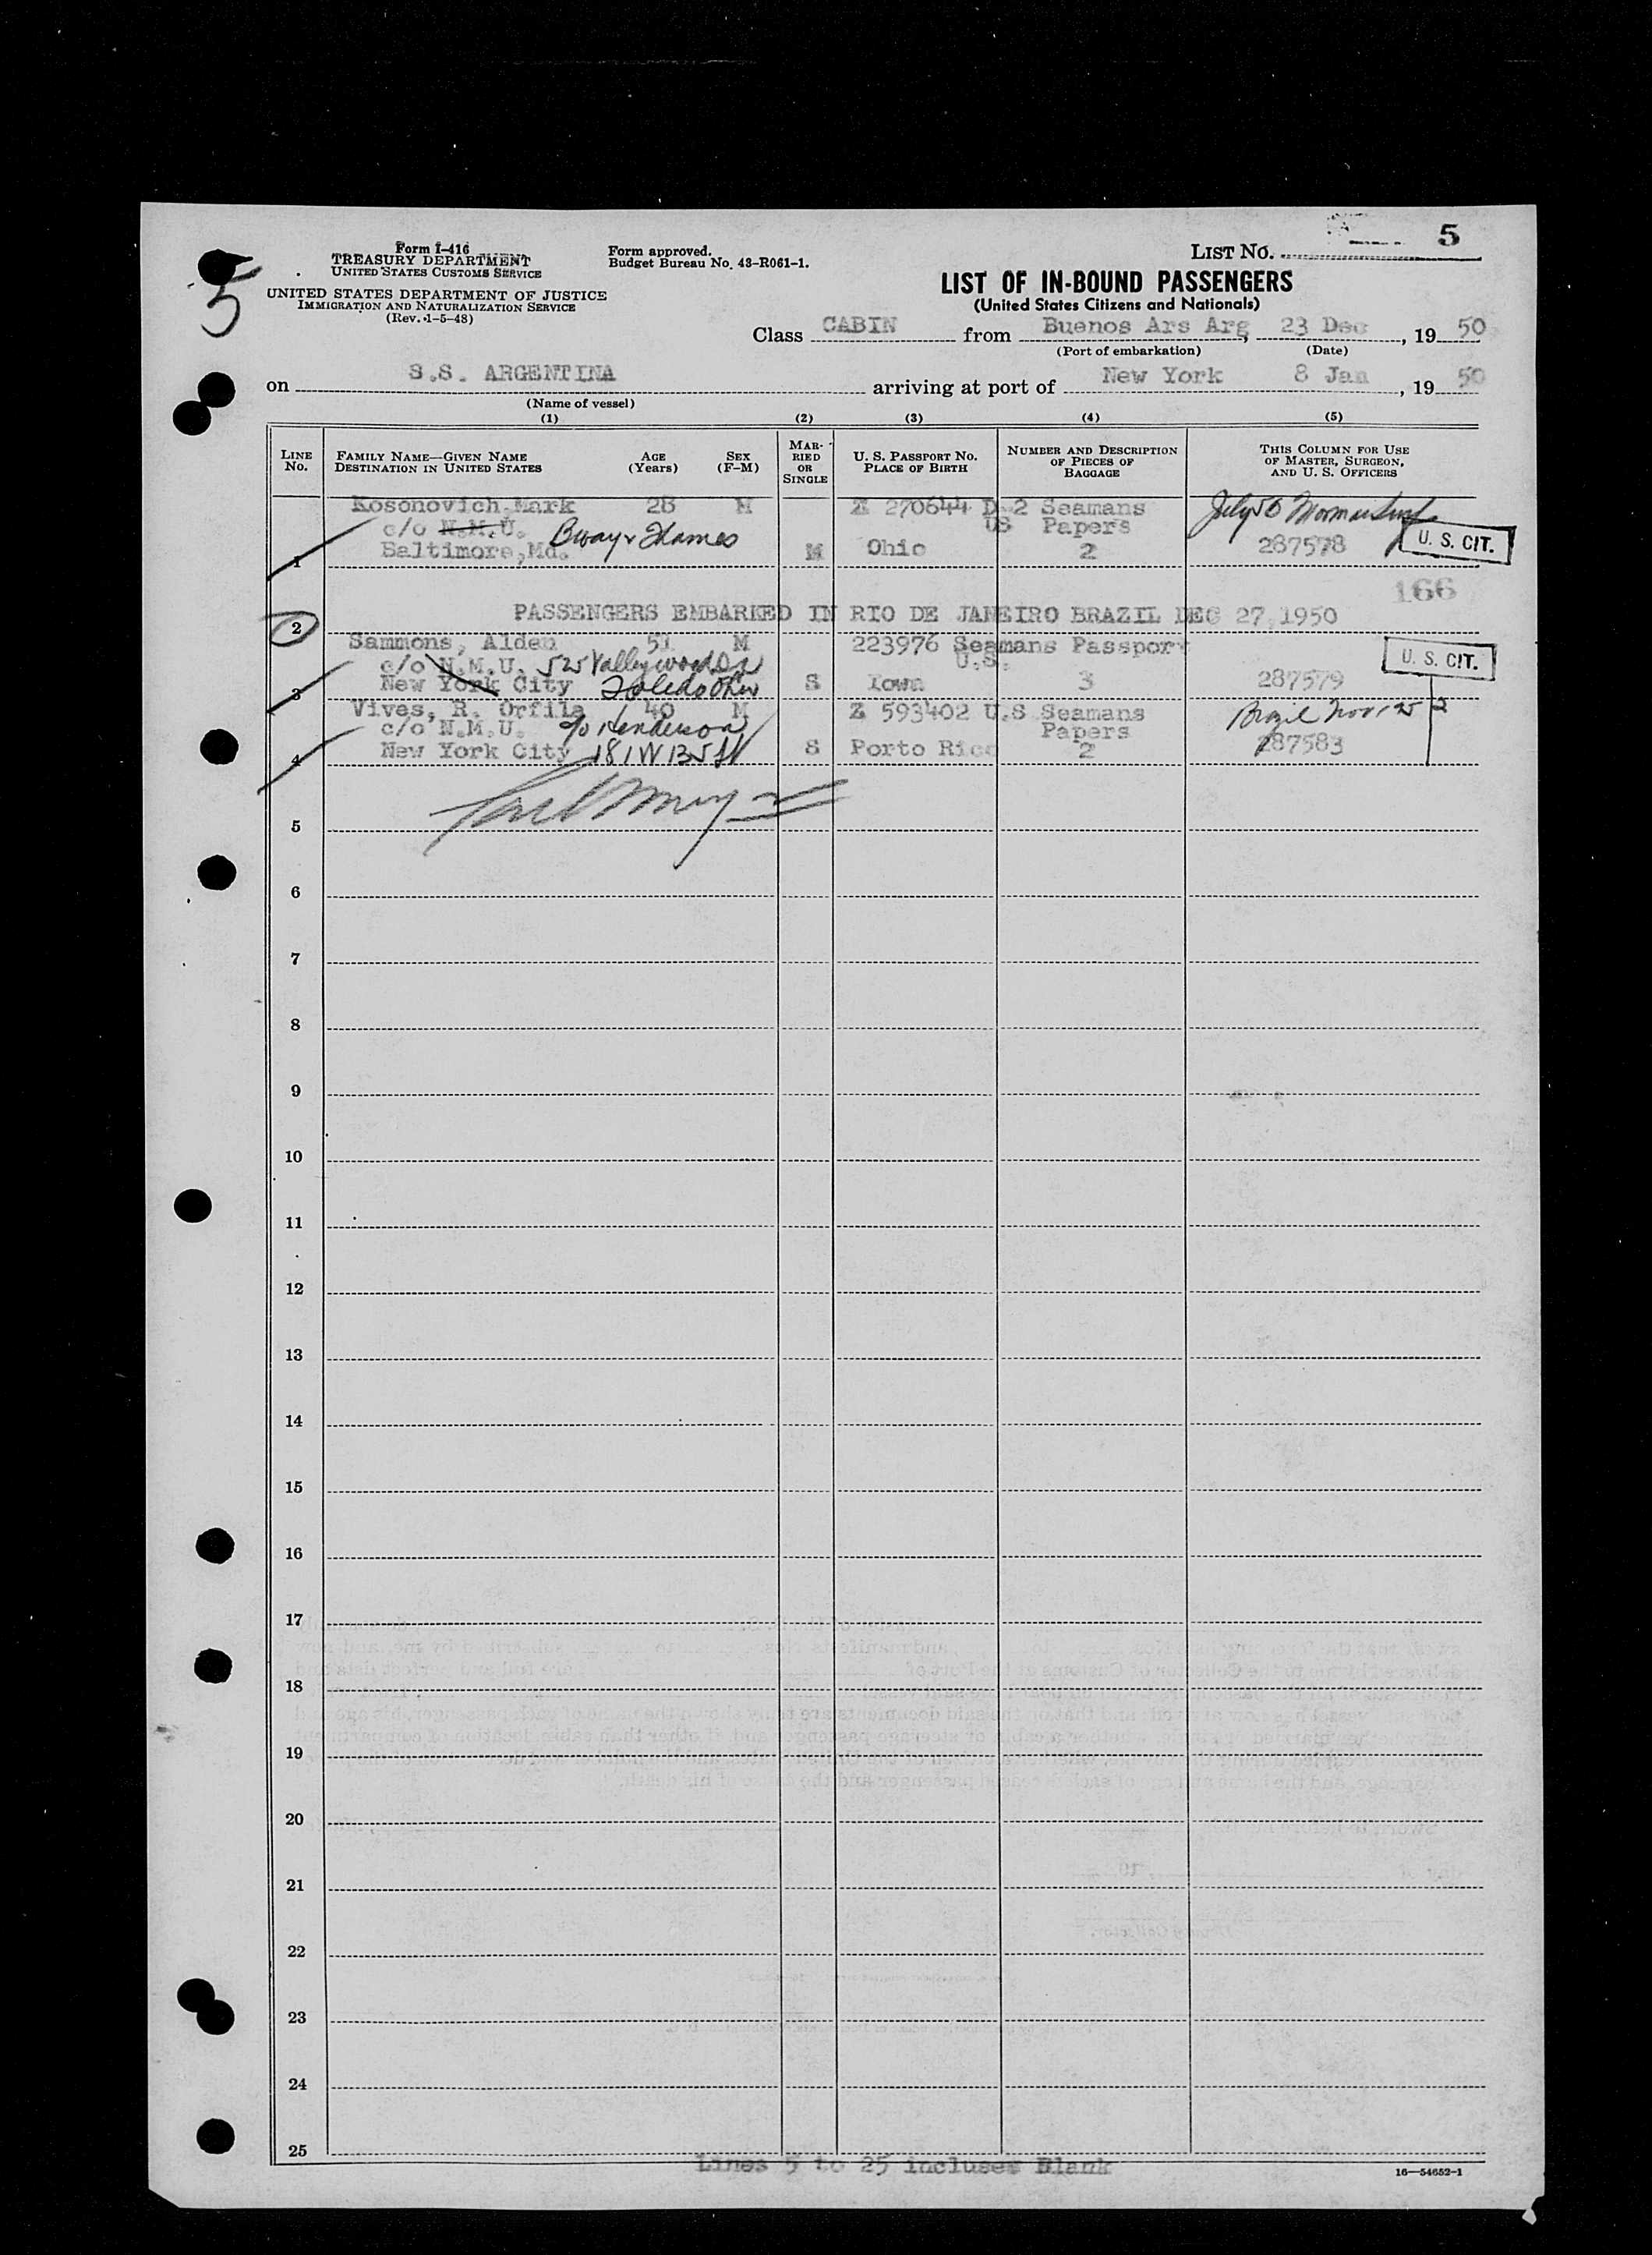 5
Form I-416
TREASURY DEPARTMENT
UNITED STATES CUSTOMS SERVICE
UNITED STATES DEPARTMENT OF JUSTICE
IMMIGRATION AND NATURALIZATION SERVICE
(Rev. 1-5-48)
Form approved.
Budget Bureau No. 43-R061-1.
LIST NO. 5
LIST OF IN-BOUND PASSENGERS
(United States Citizens and Nationals)
Class CABIN from Buenos Ars Arg, 23 Dec, 19 50
(Port of embarkation) (Date)
on S.S. ARGENTINA arriving at port of New York 8 Jan, 19 50
(Name of vessel)
(1) (2) (3) (4) (5)
LINE NO. FAMILY NAME—GIVEN NAME DESTINATION IN UNITED STATES AGE (Years) SEX (F-M) MARRIED OR SINGLE U. S. PASSPORT NO. PLACE OF BIRTH NUMBER AND DESCRIPTION OF PIECES OF BAGGAGE THIS COLUMN FOR USE OF MASTER, SURGEON, AND U. S. OFFICERS
Kosonovich Mark 28 M Z 270644 D-2 Seamans July 50
c/o N.M.U. Bway & Thames US Papers
1 Baltimore, Md. M Ohio 2 287578 U. S. CIT.
166
2 PASSENGERS EMBARKED IN RIO DE JANEIRO BRAZIL DEC 27, 1950
Sammons, Alden 51 M 223976 Seamans Passport
c/o N.M.U. 525 Valleywood Dr U.S. U. S. CIT.
3 New York City Toledo Ohio S Iowa 3 287579
Vives, R. Orfila 40 M Z 593402 U.S Seamans Brazil Nov
c/o N.M.U. c/o Henderson Papers
4 New York City 181 W 135 St S Porto Rico 2 287583
5
6
7
8
9
10
11
12
13
14
15
16
17
18
19
20
21
22
23
24
25
Lines 5 to 25 incluses Blank
16—54652-1